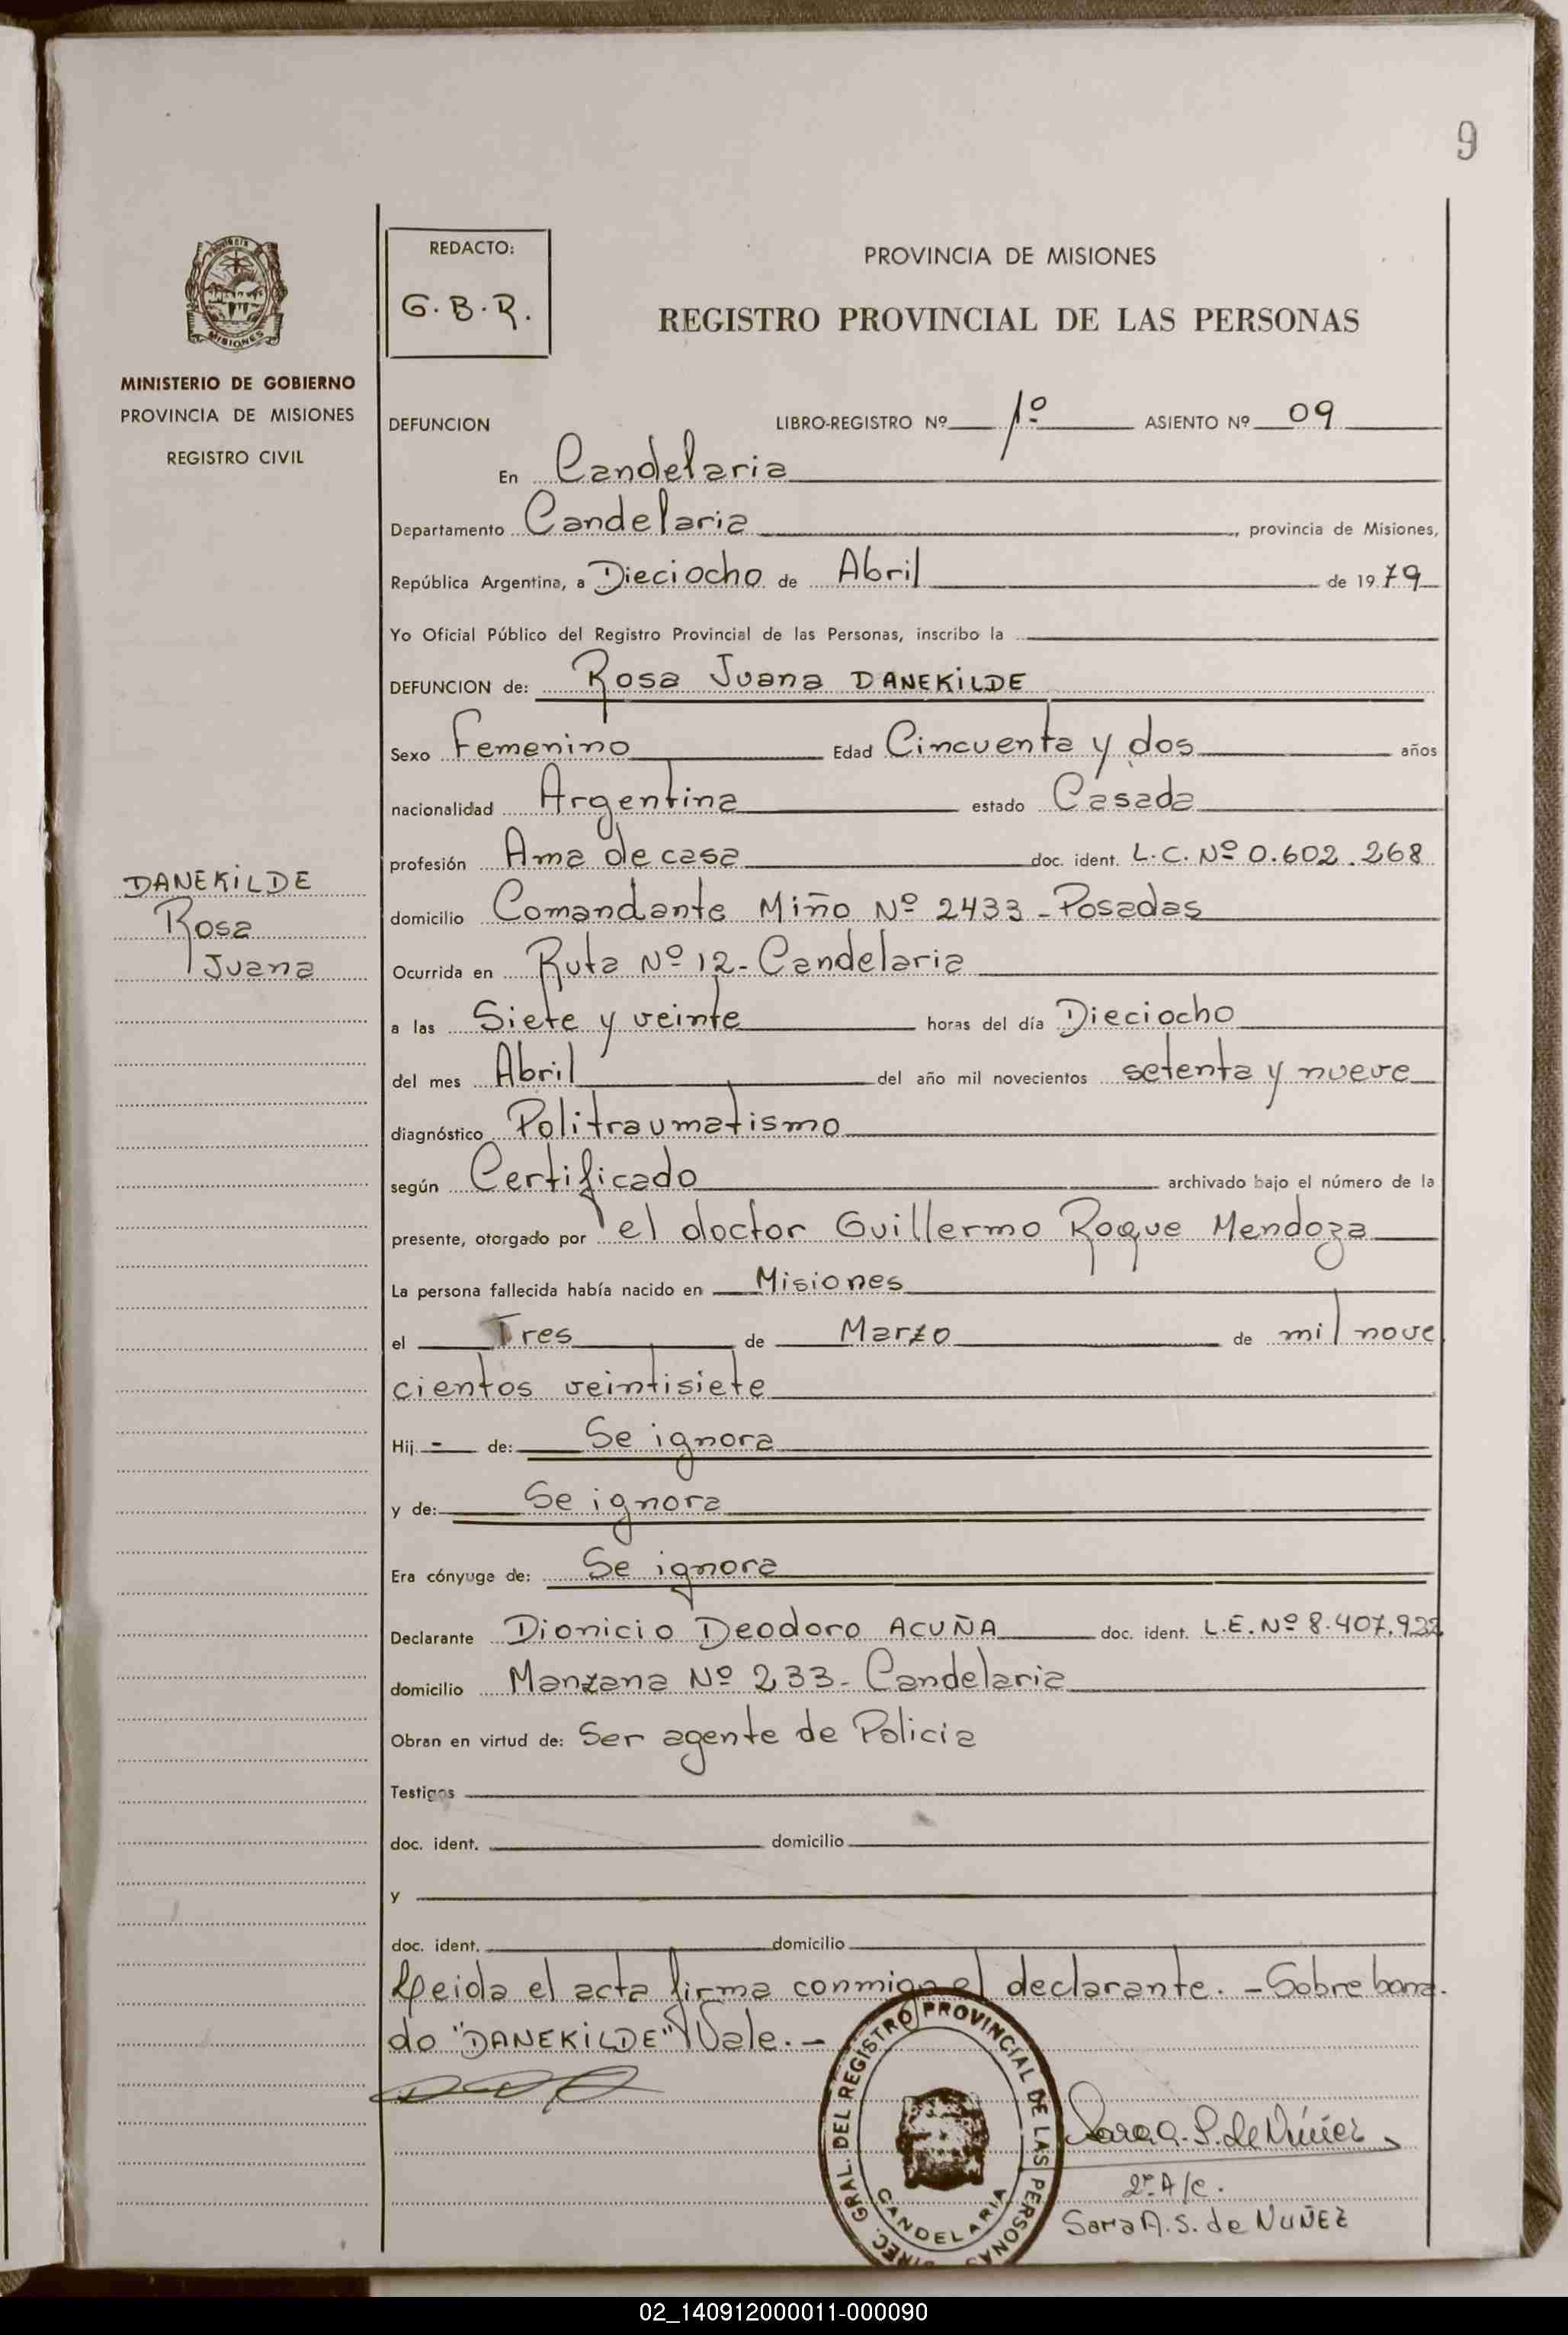 9
MISIONES
MINISTERIO DE GOBIERNO
PROVINCIA DE MISIONES
REGISTRO CIVIL
DANEKILDE
Rosa
Juana
REDACTO:
G.B.R.
PROVINCIA DE MISIONES
REGISTRO PROVINCIAL DE LAS PERSONAS
DEFUNCION LIBRO-REGISTRO Nº 1º ASIENTO Nº 09
En Candelaria
Departamento Candelaria, provincia de Misiones,
República Argentina, a Dieciocho de Abril de 1979
Yo Oficial Público del Registro Provincial de las Personas, inscribo la
DEFUNCION de: Rosa Juana DANEKILDE
Sexo Femenino Edad Cincuenta y dos años
nacionalidad Argentina estado Casada
profesión Ama de casa doc. ident. L.C. Nº 0.602.268
domicilio Comandante Miño Nº 2433 - Posadas
Ocurrida en Ruta Nº 12 - Candelaria
a las Siete y veinte horas del día Dieciocho
del mes Abril del año mil novecientos setenta y nueve
diagnóstico Politraumatismo
según Certificado archivado bajo el número de la
presente, otorgado por el doctor Guillermo Roque Mendoza
La persona fallecida había nacido en Misiones
el Tres de Marzo de mil nove
cientos veintisiete
Hij - de: Se ignora
y de: Se ignora
Era cónyuge de: Se ignora
Declarante Dionicio Deodoro ACUÑA doc. ident. L.E. Nº 8.407.922
domicilio Manzana Nº 233 - Candelaria
Obran en virtud de: Ser agente de Policia
Testigos
doc. ident. domicilio
y
doc. ident. domicilio
Leida el acta firma conmigo el declarante. - Sobre borra-
do "DANEKILDE" Vale. -
DIREC. GRAL. DEL REGISTRO PROVINCIAL DE LAS PERSONAS
CANDELARIA
Sara A. S. de Núñez
2º A/C.
Sara A. S. de NUÑEZ
02_140912000011-000090